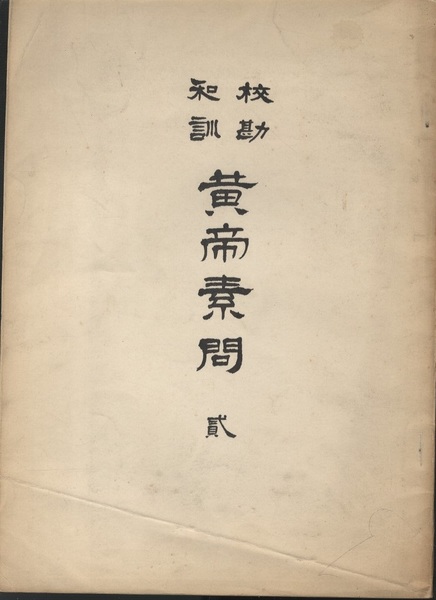 校勘
和訓
黄帝素問
貳